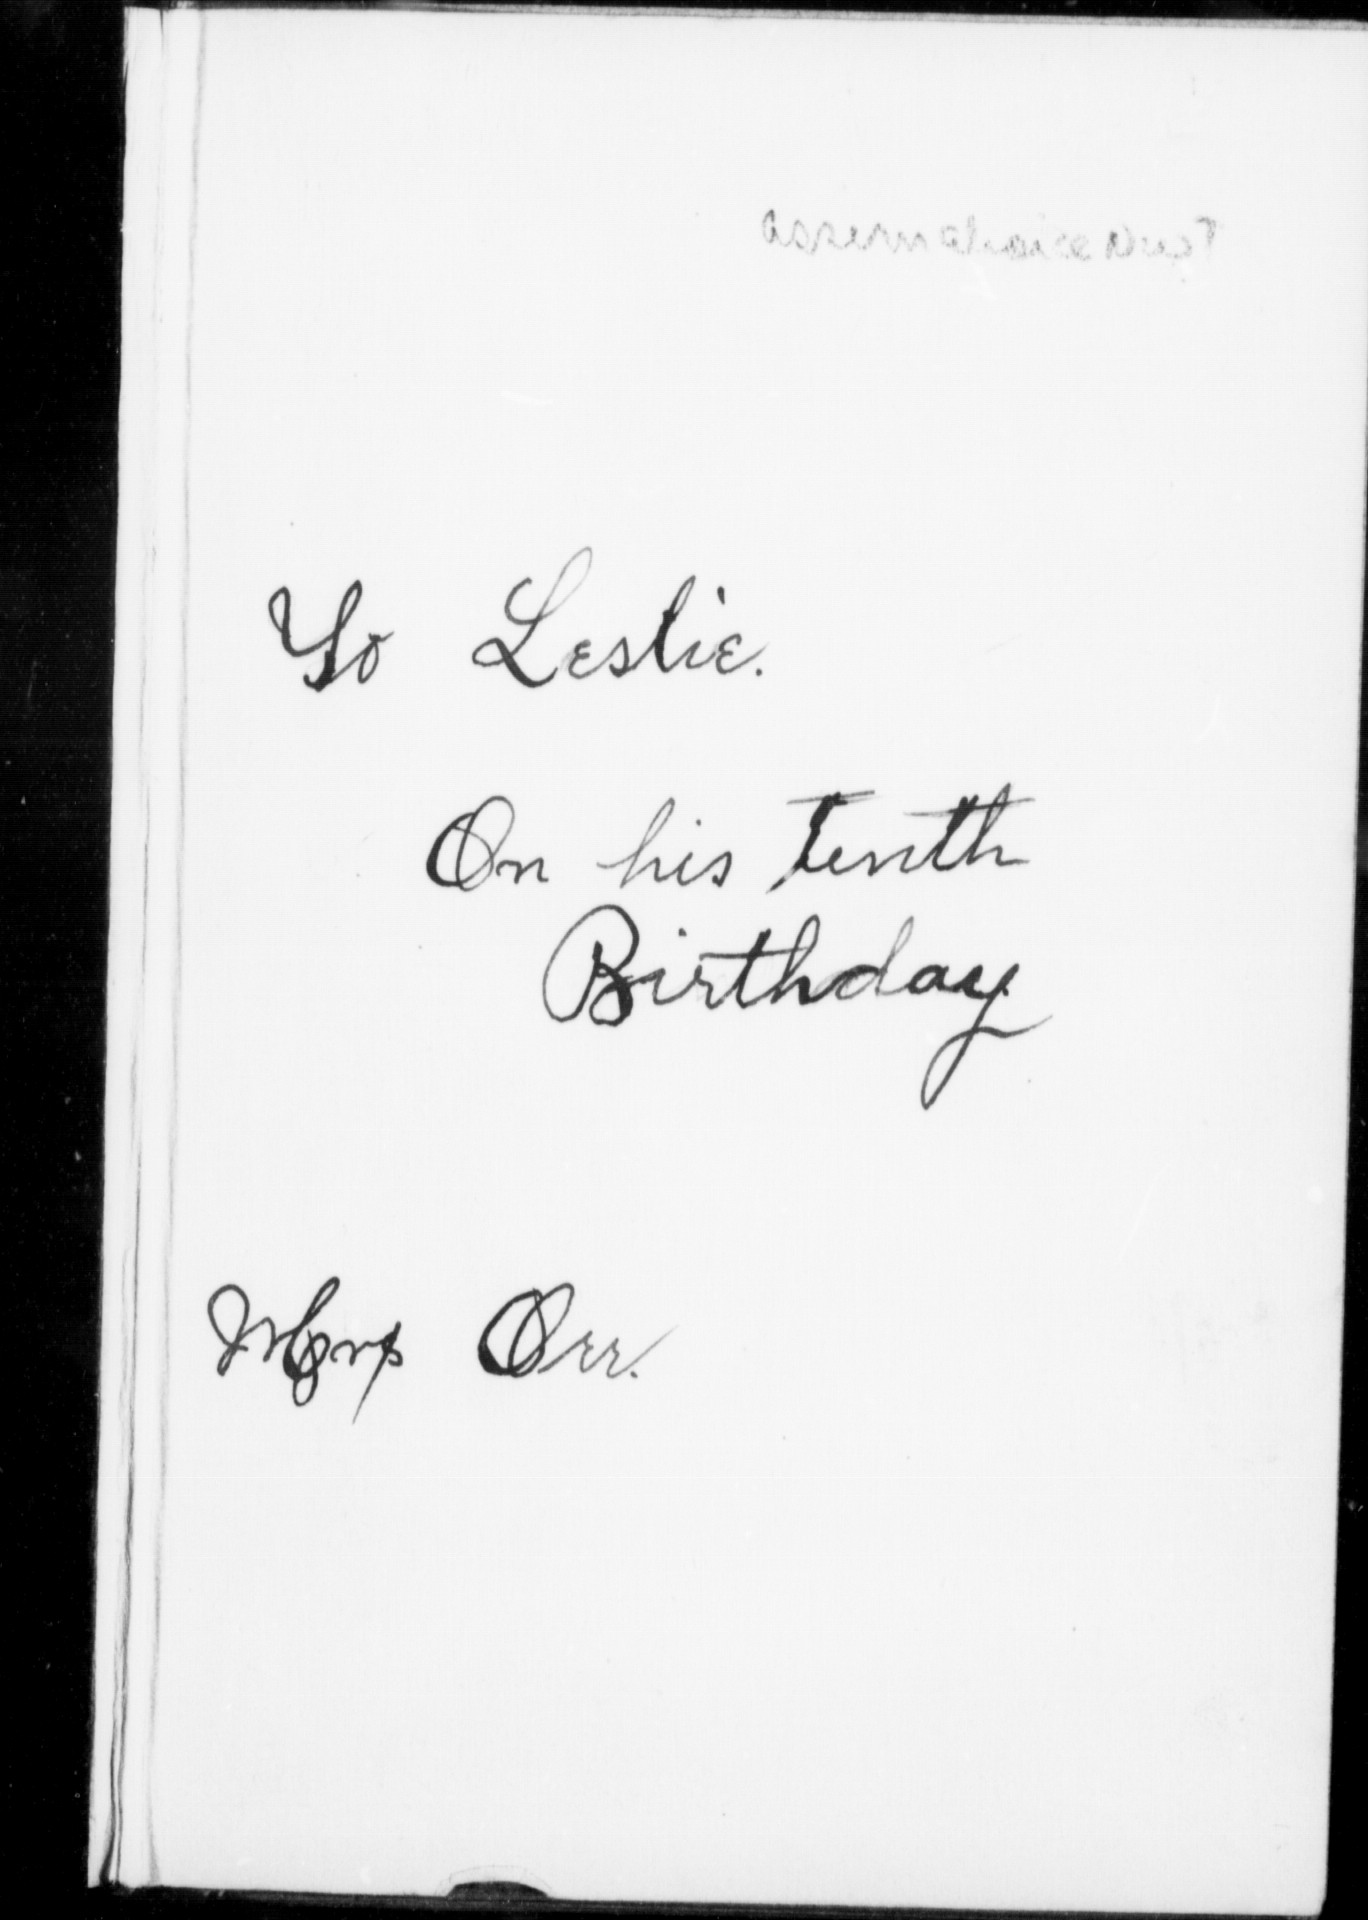 To Leslie.
On his tenth
Birthday
Mrs Orr.